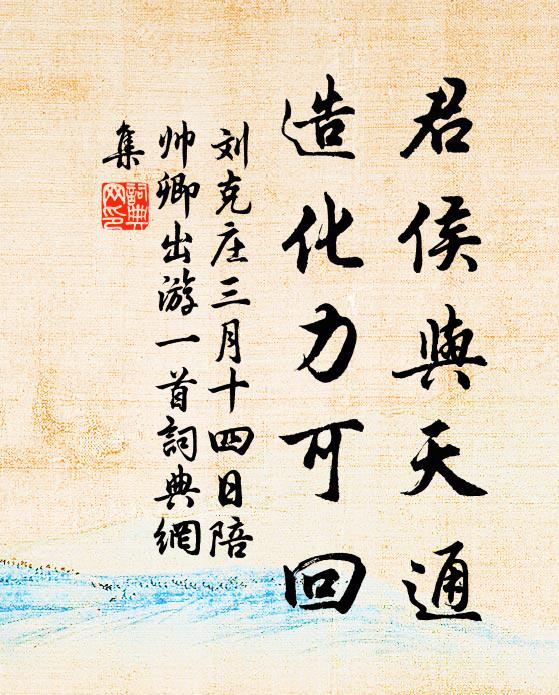 君侯與天通
造化力可回
刘克庄三月十四日陪
帅卿出游一首詞典網
集
詞典網印